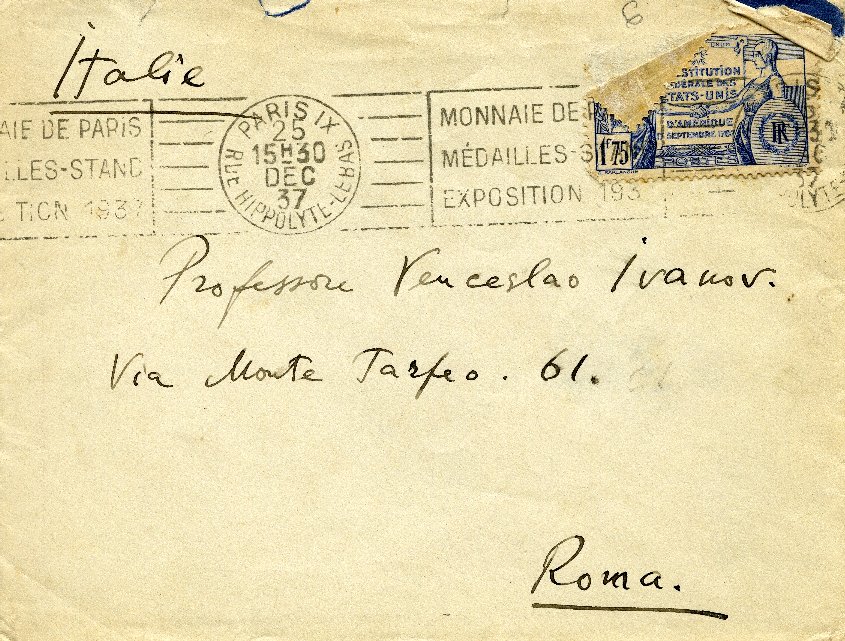 6
Italie
PARIS IX
25
15H30
DEC
37
RUE HIPPOLYTE-LEBAS
AIE DE PARIS
LLES-STAND
TION 1937
MONNAIE DE
MÉDAILLES-S
EXPOSITION 193
STITUTION
FÉDÉRALE DES
ETATS-UNIS
D'AMÉRIQUE
1F75
POSTES
RF
37
Professore Venceslao Ivanov.
Via Monte Tarpeo. 61.
Roma.